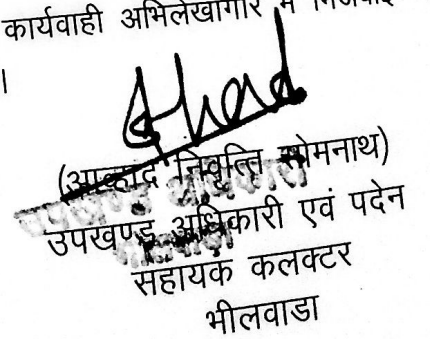 कार्यवाही अभिलेखागार में भिजवाई
।
(आव्हाद निवृत्ति सोमनाथ)
उपखण्ड अधिकारी एवं पदेन
सहायक कलक्टर
भीलवाडा